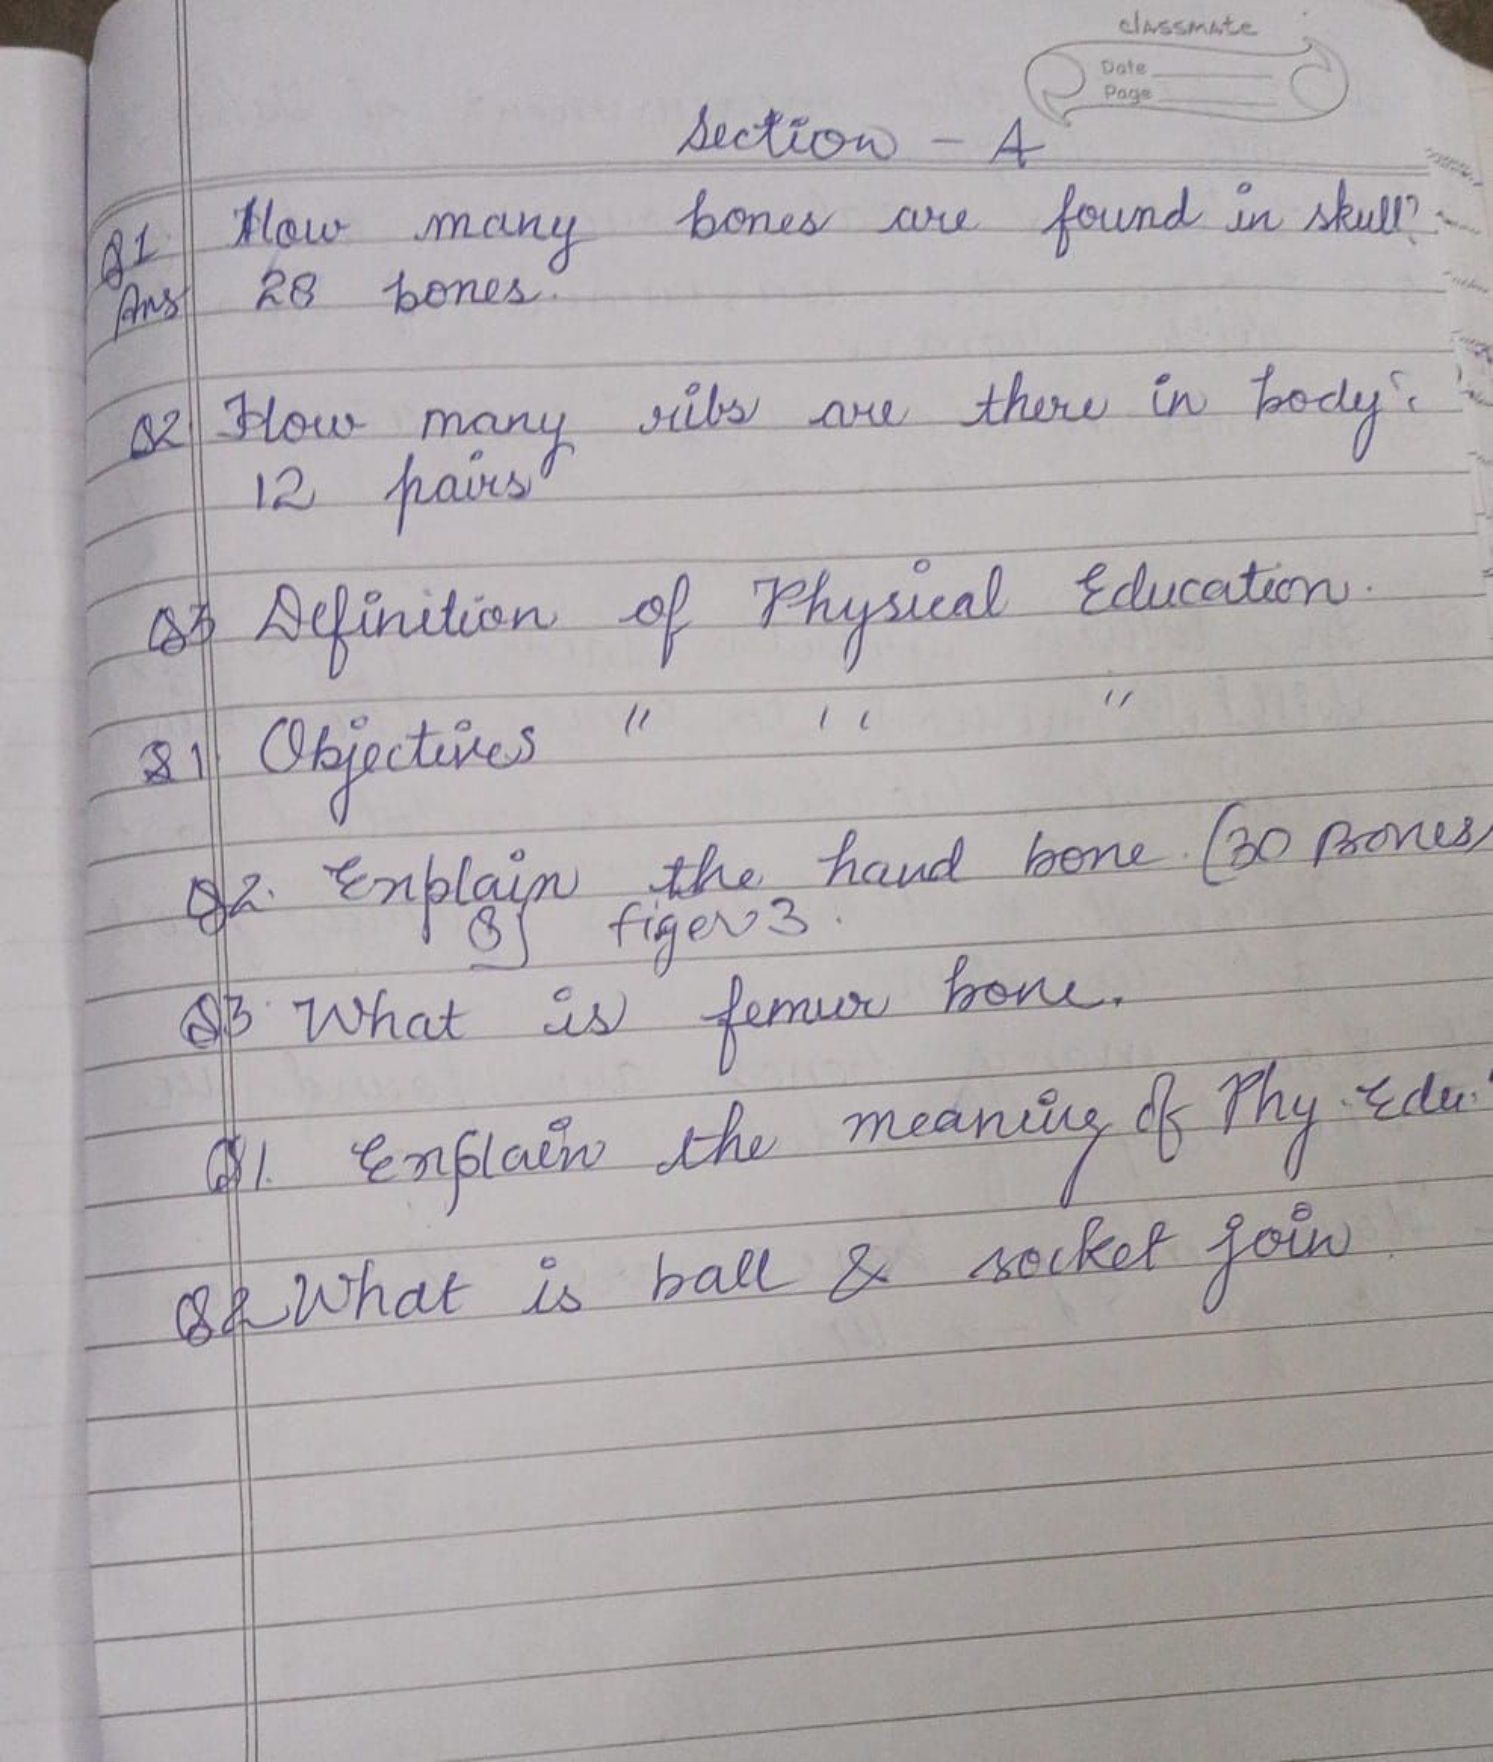 classmate
Date
Page
Section - A
Q1 How many bones are found in skull?
Ans 28 bones.
Q2 How many ribs are there in body?
12 pairs
Q3 Definition of Physical Education.
Q1 Objectives " " "
Q2. Explain the hand bone. (30 Bones
figer 3.
Q3 What is femur bone.
Q1. Explain the meaning of Phy. Edu.
Q2 What is ball & socket join